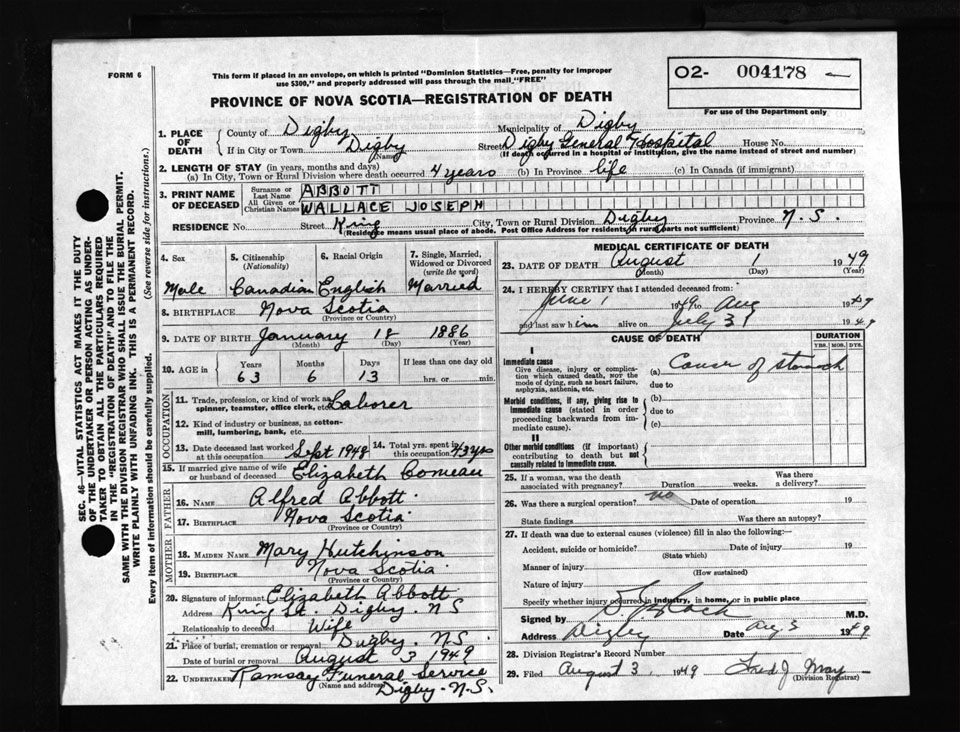 FORM 6
This form if placed in an envelope, on which is printed "Dominion Statistics—Free, penalty for improper
use $300," and properly addressed will pass through the mail "FREE"
O2- 004178
For use of the Department only
PROVINCE OF NOVA SCOTIA—REGISTRATION OF DEATH
1. PLACE OF DEATH
County of Digby
Municipality of Digby
If in City or Town Digby (Name)
Street Digby General Hospital House No.
(If death occurred in a hospital or institution, give the name instead of street and number)
2. LENGTH OF STAY (in years, months and days)
(a) In City, Town or Rural Division where death occurred 4 years (b) In Province life (c) In Canada (if immigrant)
3. PRINT NAME OF DECEASED
Surname or Last Name ABBOTT
All Given or Christian Names WALLACE JOSEPH
RESIDENCE No. Street King City, Town or Rural Division Digby Province N.S.
(Residence means usual place of abode. Post Office Address for residents in rural parts not sufficient)
4. Sex
Male
5. Citizenship (Nationality)
Canadian
6. Racial Origin
English
7. Single, Married, Widowed or Divorced (write the word)
Married
8. BIRTHPLACE Nova Scotia
(Province or Country)
9. DATE OF BIRTH January 18 1886
(Month) (Day) (Year)
10. AGE in Years 63 Months 6 Days 13 If less than one day old
hrs. or min.
OCCUPATION
11. Trade, profession, or kind of work as spinner, teamster, office clerk, etc. Laborer
12. Kind of industry or business, as cotton-mill, lumbering, bank, etc.
13. Date deceased last worked at this occupation Sept 1948
14. Total yrs. spent in this occupation 43 yrs
15. If married give name of wife or husband of deceased Elizabeth Comeau
FATHER
16. Name Alfred Abbott
17. Birthplace Nova Scotia
(Province or Country)
MOTHER
18. MAIDEN NAME Mary Hutchinson
19. BIRTHPLACE Nova Scotia
(Province or Country)
20. Signature of informant Elizabeth Abbott
Address King St. Digby. N S
Relationship to deceased Wife
21. Place of burial, cremation or removal Digby. N.S.
Date of burial or removal August 3 1949
22. UNDERTAKER Ramsay Funeral Service
(Name and address) Digby - N.S.
MEDICAL CERTIFICATE OF DEATH
23. DATE OF DEATH August 1 1949
(Month) (Day) (Year)
24. I HEREBY CERTIFY that I attended deceased from:
June 1 1949 to Aug 1949
and last saw him alive on July 31 1949
CAUSE OF DEATH
DURATION
YRS. MOS. DYS.
I
Immediate cause
Give disease, injury or complication which caused death, not the mode of dying, such as heart failure, asphyxia, asthenia, etc.
(a) Cancer of stomach
due to
Morbid conditions, if any, giving rise to immediate cause (stated in order proceeding backwards from immediate cause).
(b)
due to
(c)
II
Other morbid conditions (if important) contributing to death but not causally related to immediate cause.
25. If a woman, was the death associated with pregnancy? Duration weeks. Was there a delivery?
26. Was there a surgical operation? no Date of operation 19
State findings Was there an autopsy?
27. If death was due to external causes (violence) fill in also the following:—
Accident, suicide or homicide? Date of injury 19
(State which)
Manner of injury
(How sustained)
Nature of injury
Specify whether injury occurred in industry, in home, or in public place
Signed by M.D.
Address Digby Date Aug 3 1949
28. Division Registrar's Record Number
29. Filed August 3, 1949 Fred J May
(Division Registrar)
SEC. 46—VITAL STATISTICS ACT MAKES IT THE DUTY
OF THE UNDERTAKER OR PERSON ACTING AS UNDER-
TAKER TO OBTAIN ALL THE PARTICULARS REQUIRED
IN THE "REGISTRATION OF DEATH" AND TO FILE THE
SAME WITH THE DIVISION REGISTRAR WHO SHALL ISSUE THE BURIAL PERMIT.
WRITE PLAINLY WITH UNFADING INK. THIS IS A PERMANENT RECORD.
Every item of information should be carefully supplied. (See reverse side for instructions.)